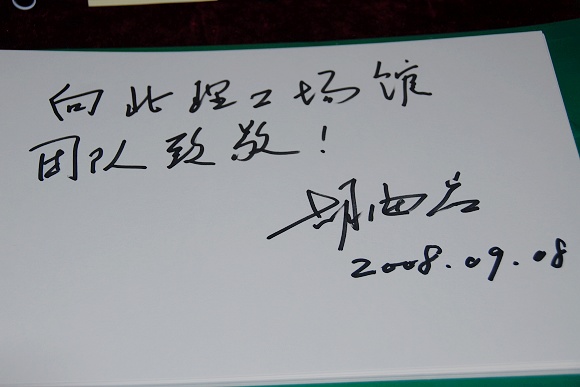 向北理工场馆
团队致敬!
2008.09.08